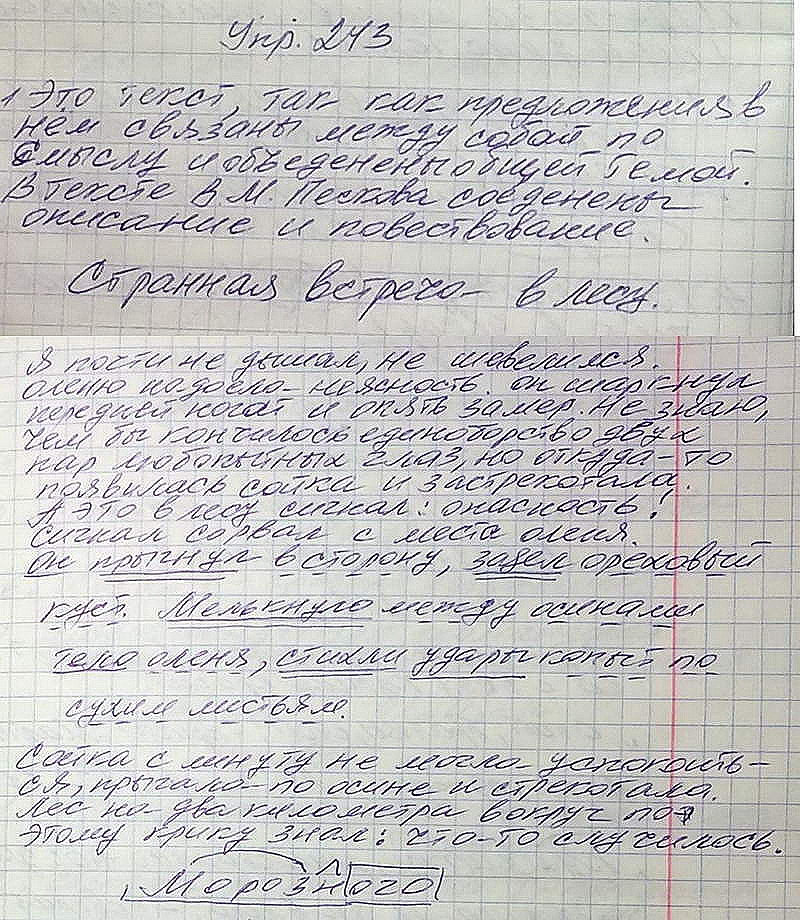 Упр. 243
1 Это текст, так как предложения в
нем связаны между собой по
смыслу и объеденены общей темой.
В тексте В.М. Пескова соеденены
описание и повествование.
Странная встреча в лесу.
Я почти не дышал, не шевелился.
Оленю надоела неясность, он шаркнул
передней ногой и опять замер. Не знаю,
чем бы кончилось единоборство двух
пар любопытных глаз, но откуда-то
появилась сойка и застрекотала.
А это в лесу сигнал: опасность!
Сигнал сорвал с места оленя.
Он прыгнул в сторону, задел ореховый
куст. Мелькнуло между осинами
тело оленя, стихли удары копыт по
сухим листьям.
Сойка с минуту не могла успокоить-
ся, прыгала по осине и стрекотала.
Лес на два километра вокруг по
этому крику знал: что-то случилось.
Морозного